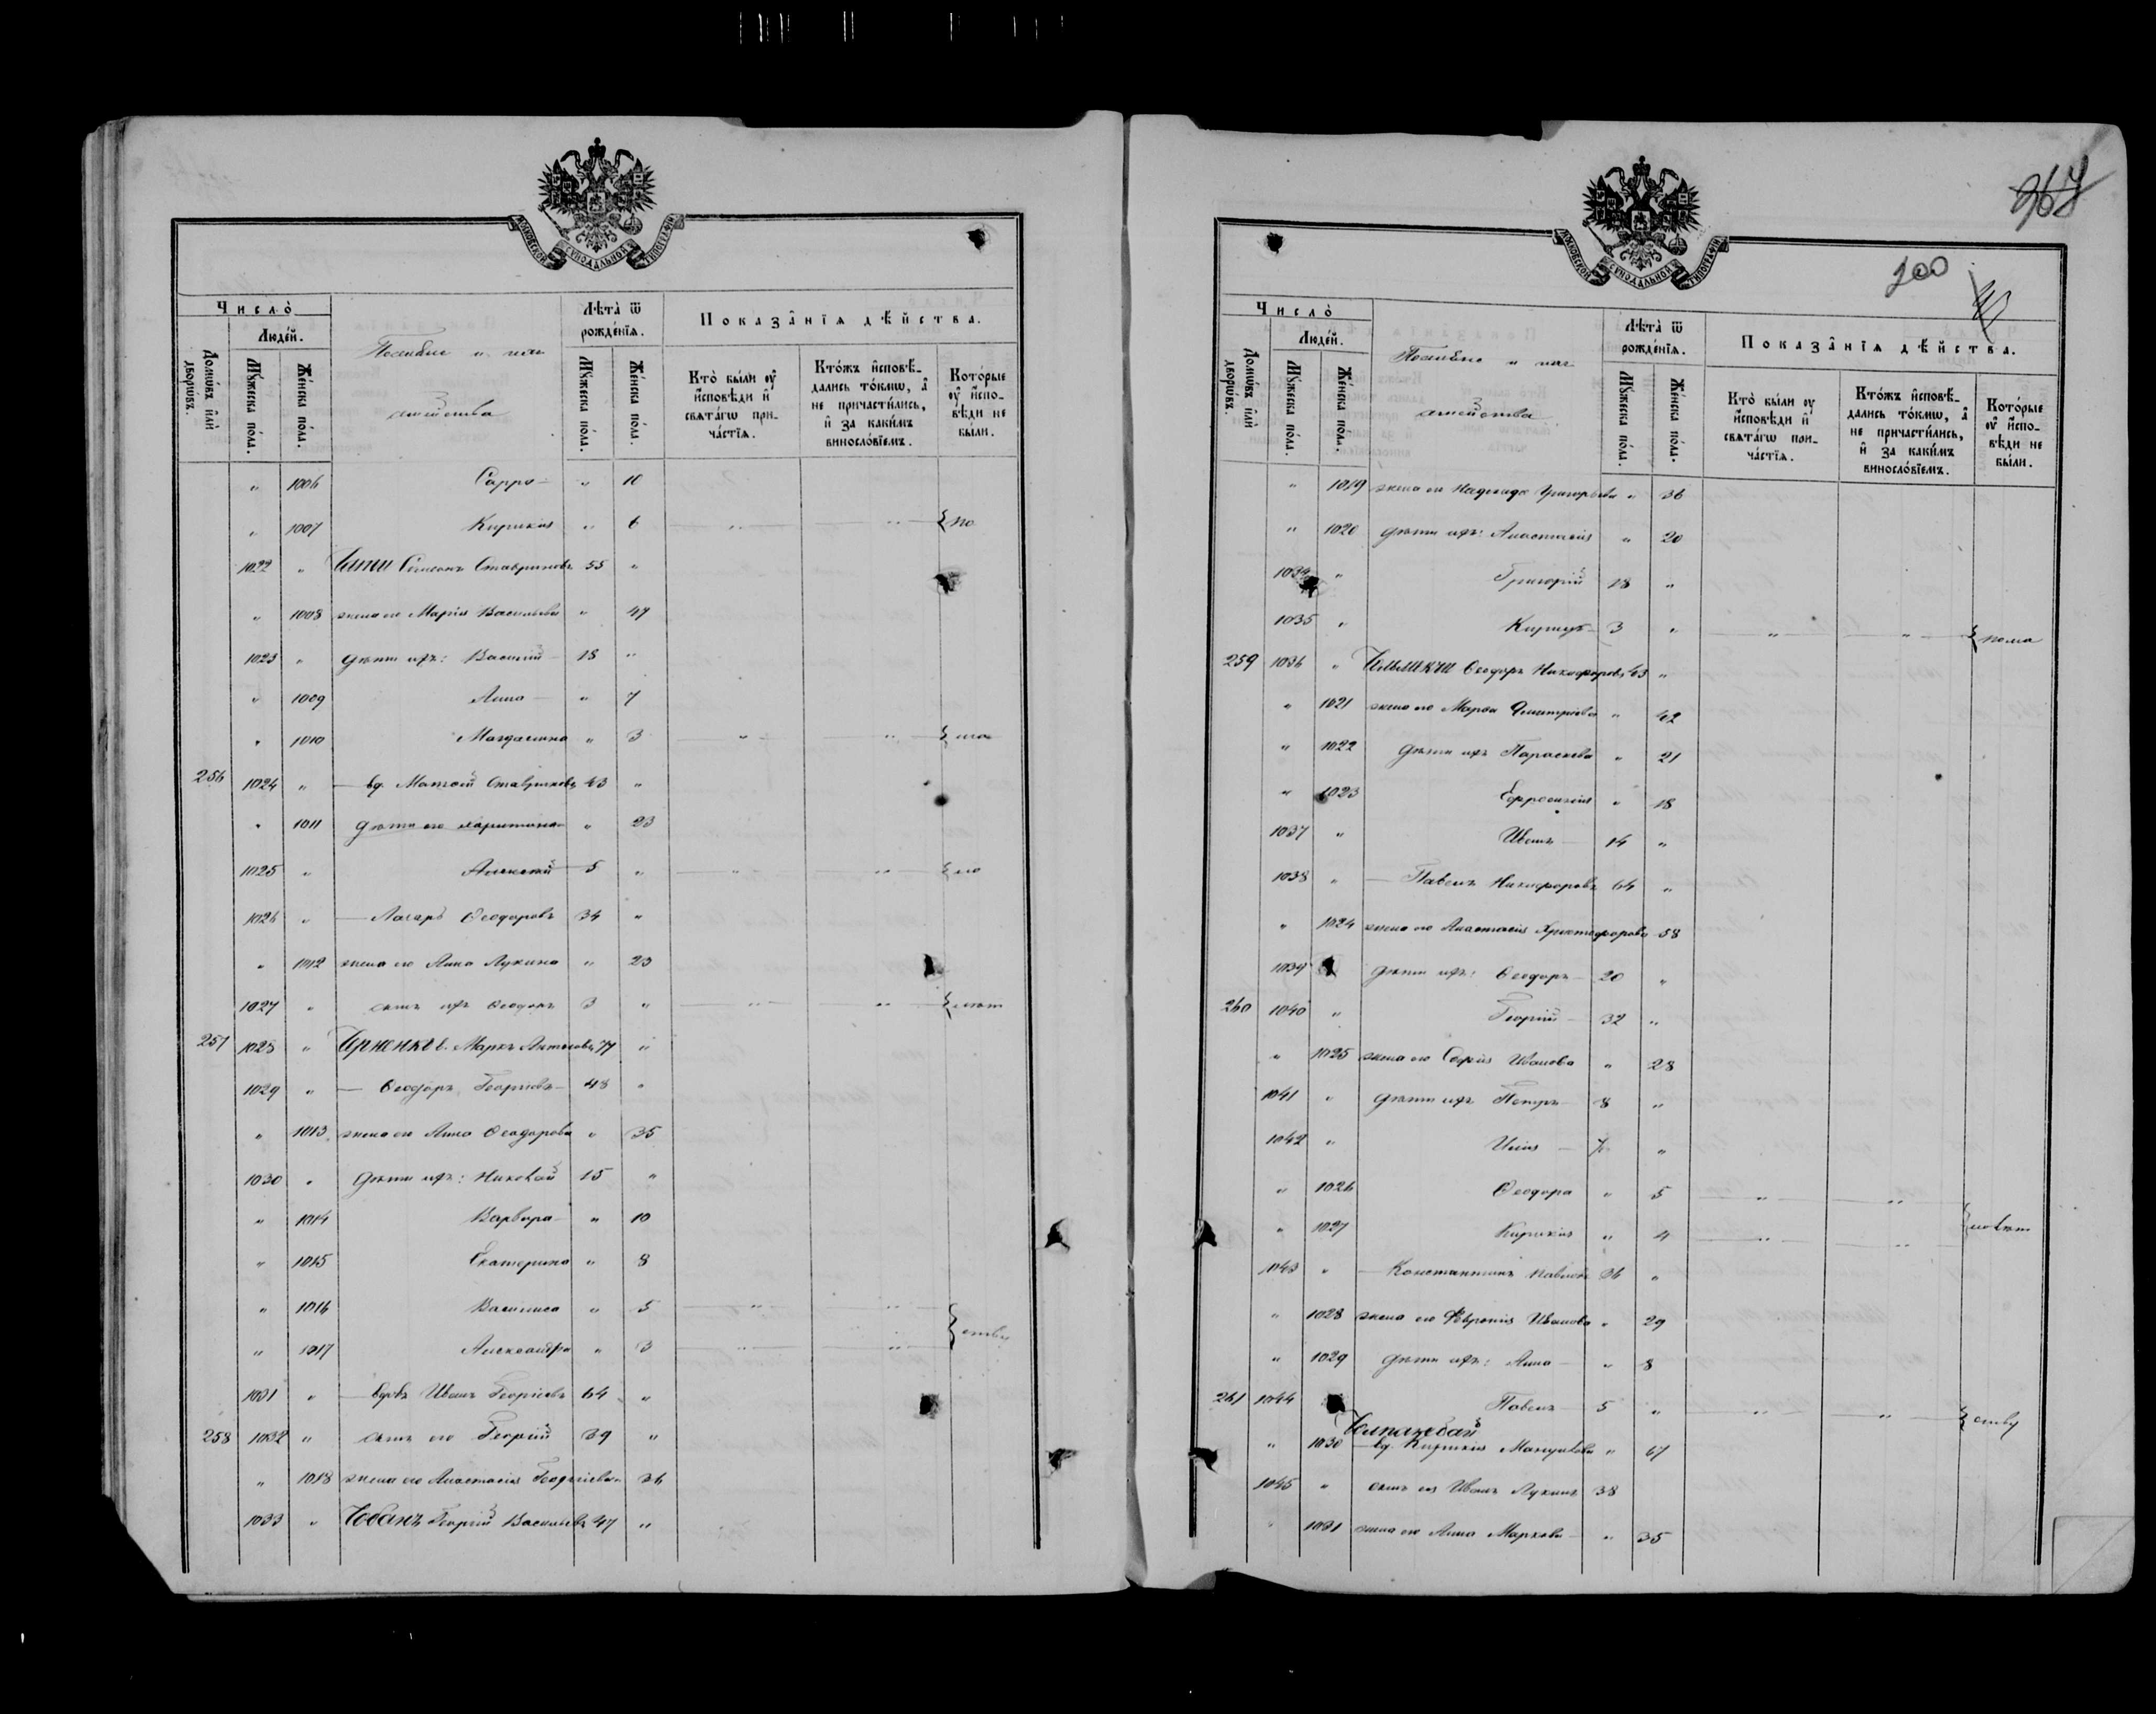 МОСКОВСКОЙ СУНОДАЛЬНОЙ ТИПОГРАФІИ
Число̀
Людей.
Домѡвъ и҆лѝ дворѡвъ.
Мꙋжеска по́ла.
Же́нска по́ла.
семейства
Лѣта̀ ѿ рожде́нїѧ.
Мꙋжеска по́ла.
Же́нска по́ла.
Показа̑нїѧ дѣ́йства.
Кто̀ бы́ли ᲂу҆ и҆сповѣди и҆ свѧта́гѡ причастїѧ.
Кто́жъ и҆сповѣ́дались то́кмѡ, а҆ не причасти́лись, и҆ за каки́мъ винослóвїемъ.
Кото́рые ᲂу҆ и҆сповѣди не бы́ли.
" 1006 Сарра — " 10
" 1007 Кирикія " 6 " " по
1022 " Семеонъ Ставриновъ 55 "
" 1008 жена его Марія Васильева " 47
1023 " дѣти ихъ: Василій — 18 "
" 1009 Анна — " 7
" 1010 Магдалина " 3 " "
256 1024 " — вд. Матѳей Ставриновъ 43 "
" 1011 дѣти его Харитина — " 23
1025 " Алексѣй — 5 " " "
1026 " — Лазарь Ѳеодоровъ 34 "
" 1012 жена его Анна Лукина " 23
1027 " сынъ ихъ Ѳеодоръ 3 " " "
257 1028 " Маркъ Антоновъ 77 "
1029 " — Ѳеодоръ Георгіевъ — 48 "
" 1013 жена его Анна Ѳеодорова " 35
1030 " дѣти ихъ: Николай 15 "
" 1014 Варвара — " 10
" 1015 Екатерина " 8
" 1016 Василиса " 5 " "
" 1017 Александра " 3 " "
1031 " — Иванъ Георгіевъ 64 "
258 1032 " сынъ его Георгій 39 "
" 1018 жена его Анастасія Георгіева " 36
1033 " Чобанъ Георгій Васильевъ 47 "
267
200
МОСКОВСКОЙ СУНОДАЛЬНОЙ ТИПОГРАФІИ
Число̀
Людей.
Домѡвъ и҆лѝ дворѡвъ.
Мꙋжеска по́ла.
Же́нска по́ла.
семейства
Лѣта̀ ѿ рожде́нїѧ.
Мꙋжеска по́ла.
Же́нска по́ла.
Показа̑нїѧ дѣ́йства.
Кто̀ бы́ли ᲂу҆ и҆сповѣди и҆ свѧта́гѡ причастїѧ.
Кто́жъ и҆сповѣ́дались то́кмѡ, а҆ не причасти́лись, и҆ за каки́мъ винослóвїемъ.
Кото́рые ᲂу҆ и҆сповѣди не бы́ли.
" 1019 жена его Надежда Григорьева " 36
" 1020 дѣти ихъ: Анастасія " 20
1034 " Григорій 18 "
1035 " 3 " " "
259 1036 " Ѳеодоръ Никифоровъ 43 "
" 1021 жена его Марѳа Димитріева " 42
" 1022 дѣти ихъ Параскева " 21
" 1023 Ефросинія " 18
1037 " Иванъ — 14 "
1038 " — Павелъ Никифоровъ 64 "
" 1024 жена его Анастасія Христофорова 58
1039 дѣти ихъ: Ѳеодоръ — 20 "
260 1040 " Георгій — 32 "
" 1025 жена его Софія Иванова " 28
1041 " дѣти ихъ Петръ — 8 "
1042 " Илія — 7 "
" 1026 Ѳеодора " 5 " "
" 1027 Кирикія " 4 " "
1043 " — Константинъ Павловъ 36 "
" 1028 жена его Февронія Иванова " 29
" 1029 дѣти ихъ: Анна — " 8
261 1044 Павелъ — 5 " " "
" 1030 — вд. Кирикія " 67
1045 " сынъ ея Иванъ Лукинъ 38
" 1031 жена его Анна Маркова — " 35